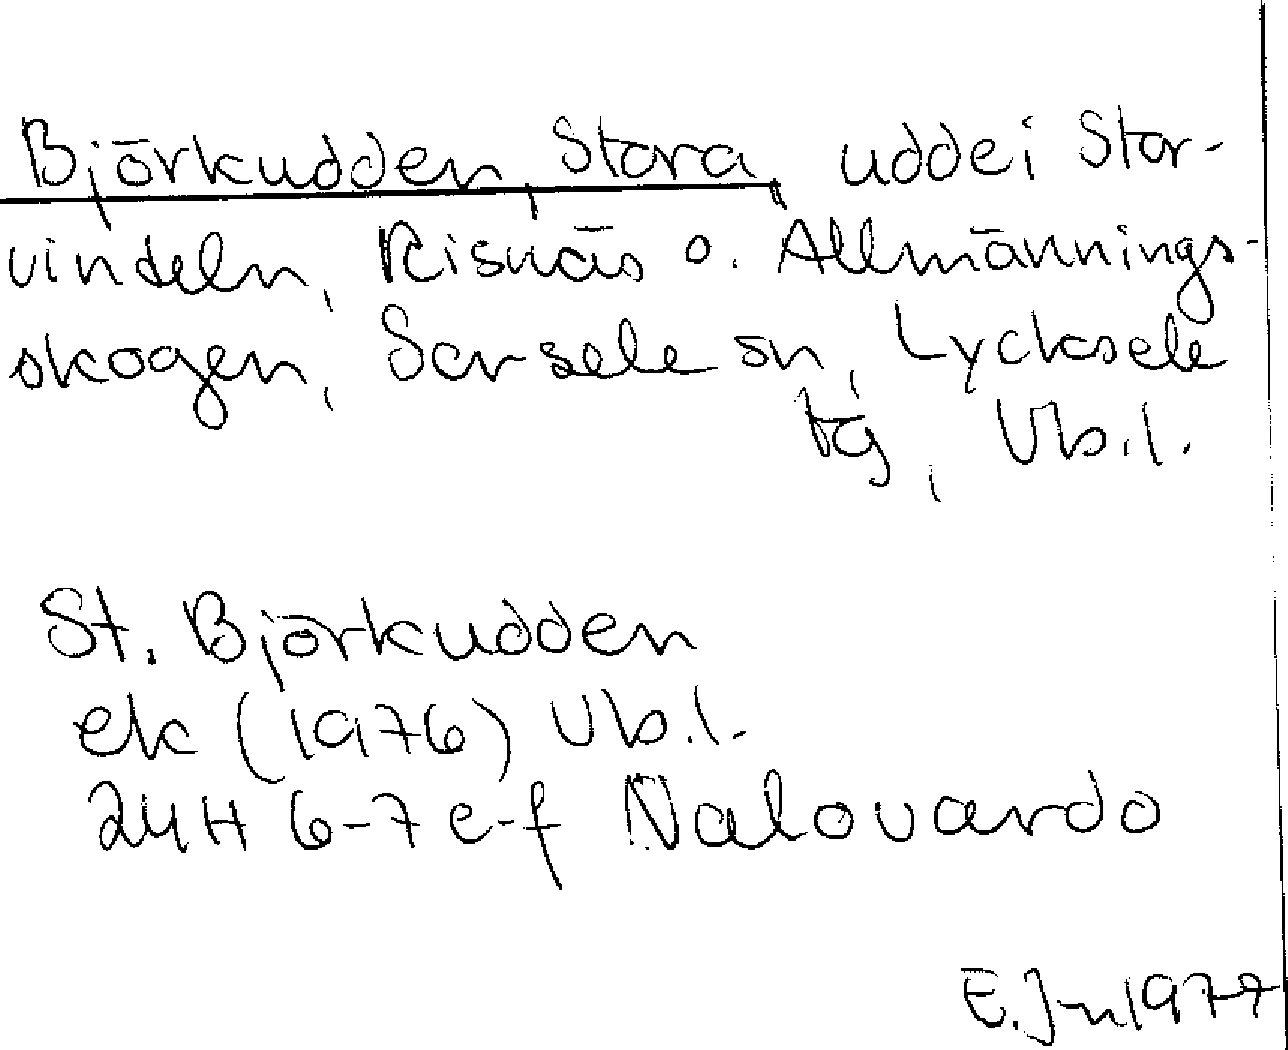 Björkudden, Stora, udde i Stor-
vindeln, Risnäs o. Allmännings-
skogen, Sorsele sn, Lycksele
tg, Vb.l.
St. Björkudden
ek (1976) Vb.l.
24H 6-7 e-f Nalovardo
E. Jn 1977